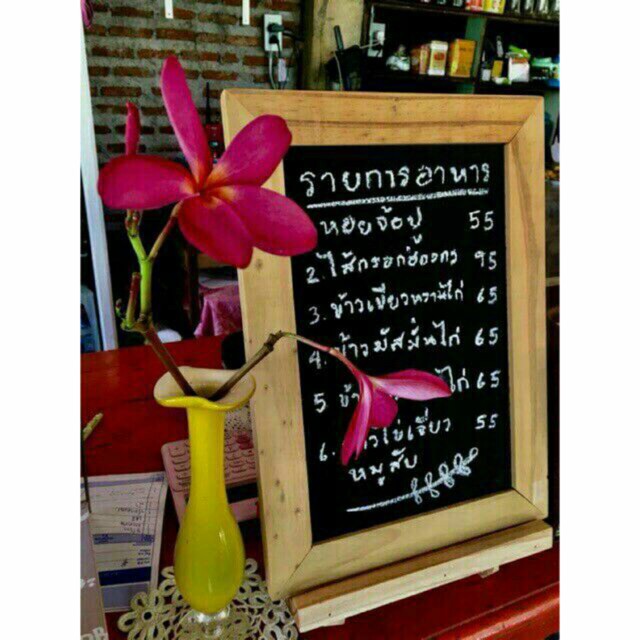 รายการอาหาร
หอยจ้อปู 55
2. ไส้กรอก 95
3. ข้าวเขียวหวานไก่ 65
4. ข้าวมัสมั่นไก่ 65
5 ข้า ไก่ 65
6. ไข่เจียว 55
หมูสับ